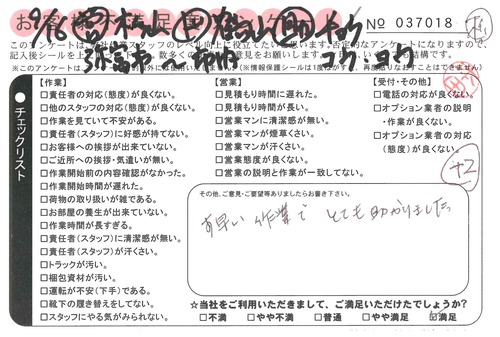 9/16
№ 037018
このアンケートは
記入後シールを
チェックリスト
【作業】
□責任者の対応(態度)が良くない。
□他のスタッフの対応(態度)が良くない。
□作業を見ていて不安がある。
□責任者(スタッフ)に好感が持てない。
□お客様への挨拶が出来ていない。
□ご近所への挨拶・気遣いが無い。
□作業開始前の内容確認がなかった。
□作業開始時間が遅れた。
□荷物の取り扱いが雑である。
□お部屋の養生が出来ていない。
□作業時間が長すぎる。
□責任者(スタッフ)に清潔感が無い。
□責任者(スタッフ)が汗くさい。
□トラックが汚い。
□梱包資材が汚い。
□運転が不安(下手)である。
□靴下の履き替えをしてない。
□スタッフにやる気がみられない。
【営業】
□見積もり時間に遅れた。
□見積もり時間が長い。
□営業マンに清潔感が無い。
□営業マンが煙草くさい。
□営業マンが汗くさい。
□営業態度が良くない。
□営業の説明と作業が一致してない。
【受付・その他】
□電話の対応が良くない。
□オプション業者の説明
・作業が良くない。
□オプション業者の対応
(態度)が良くない。
+2
その他、ご意見・ご要望等ありましたらお書き下さい。
す早い作業で とても助かりました。
☆当社をご利用いただきまして、ご満足いただけたでしょうか?
□不満 □やや不満 □普通 □やや満足 ☑満足